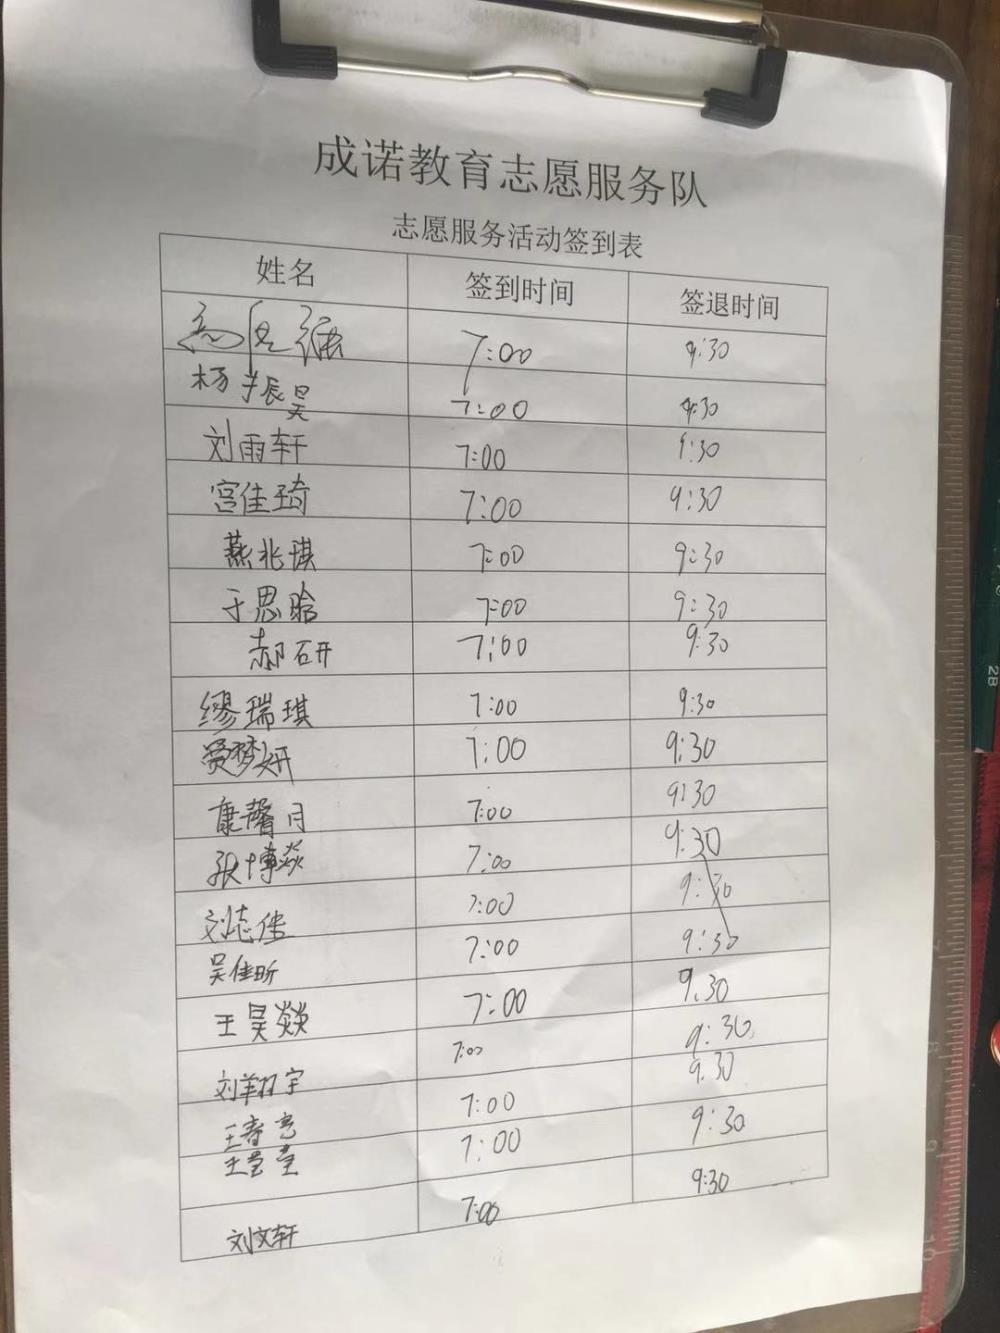 成诺教育志愿服务队
志愿服务活动签到表
姓名 签到时间 签退时间
7:00 9:30
杨振昊 7:00 9:30
刘雨轩 7:00 9:30
宫佳琦 7:00 9:30
燕兆琪 7:00 9:30
于思晗 7:00 9:30
郝研 7:00 9:30
缪瑞琪 7:00 9:30
贾梦妍 7:00 9:30
康馨月 7:00 9:30
张博焱 7:00 9:30
刘志佳 7:00 9:30
吴佳昕 7:00 9:30
王昊燚 7:00 9:30
刘 宇 7:00 9:30
王春亮 7:00 9:30
王 7:00 9:30
刘文轩 7:00 9:30
2B